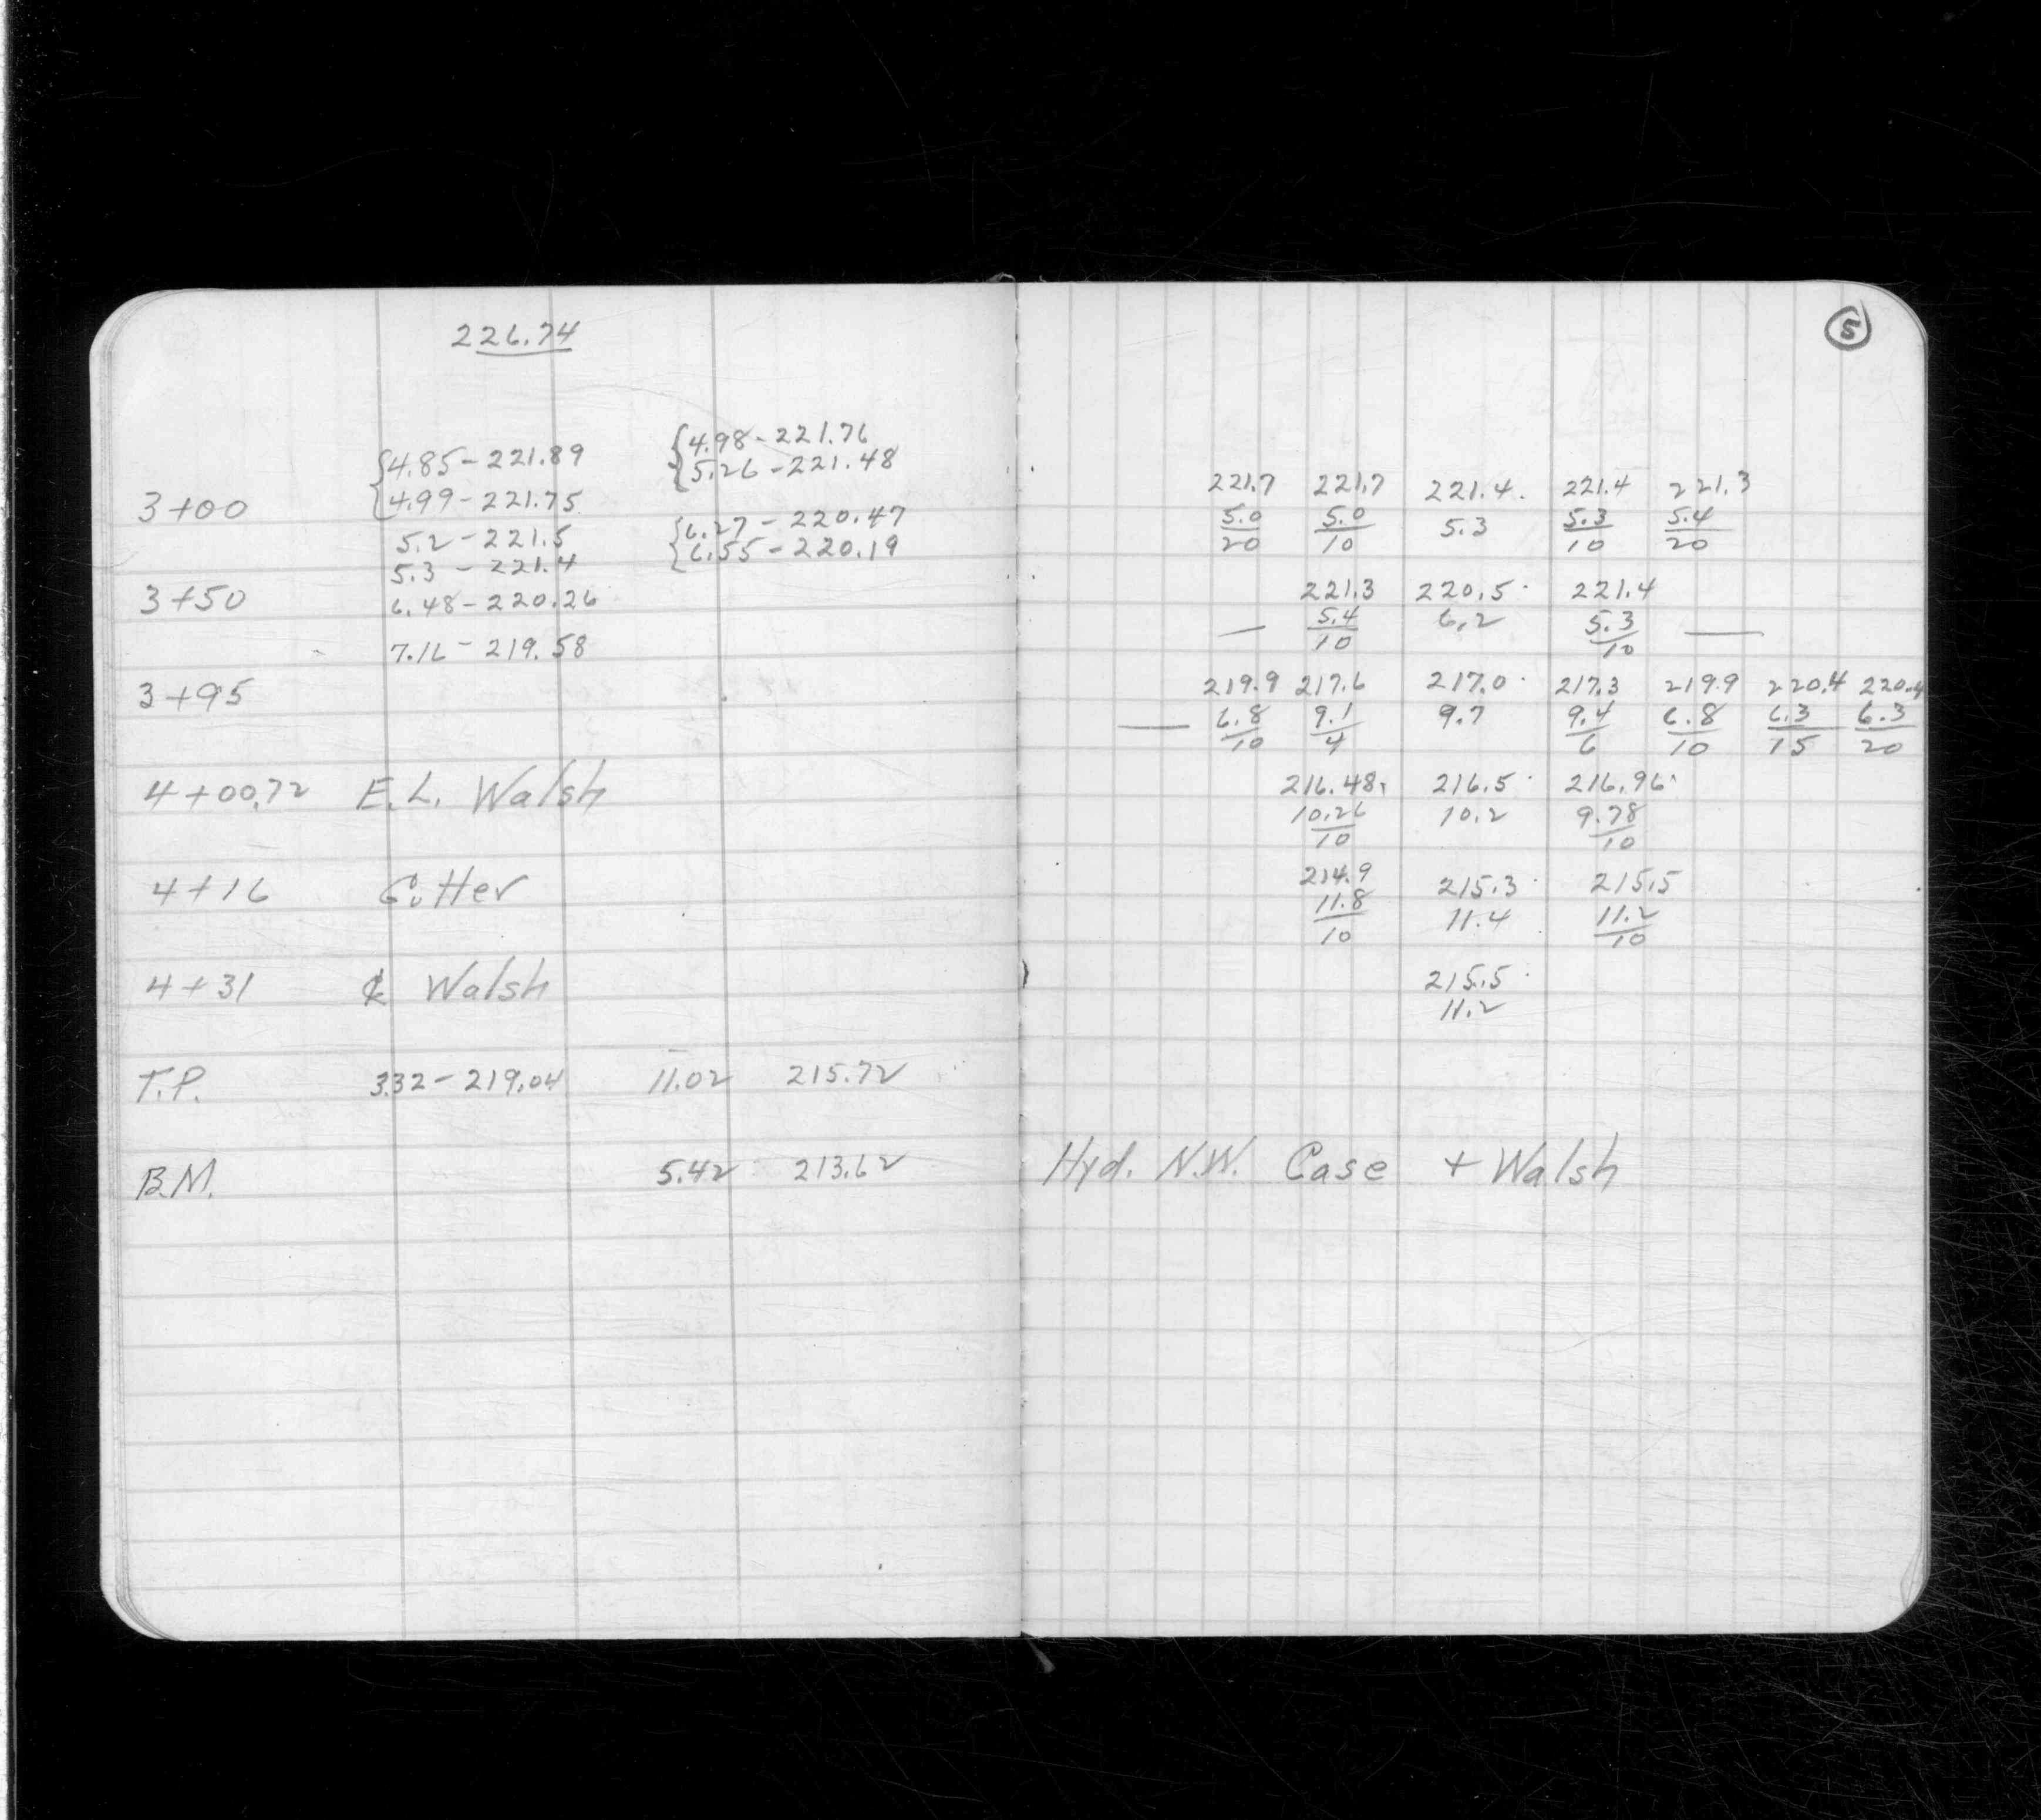 226.74
{4.98 - 221.76
{4.85 - 221.89 5.26 - 221.48
3+00 4.99 - 221.75
5.2 - 221.5 {6.27 - 220.47
5.3 - 221.4 6.55 - 220.19
3+50 6.48 - 220.26
7.16 - 219.58
3+95
4+00.72 E.L. Walsh
4+16 Gutter
4+31 ℄ Walsh
T.P. 3.32 - 219.04 11.02 215.72
B.M. 5.42 213.62
5
221.7 221.7 221.4. 221.4 221.3
5.0 5.0 5.3 5.3 5.4
20 10 10 20
221.3 220.5 221.4
— 5.4 6.2 5.3 —
10 10
219.9 217.6 217.0 217.3 219.9 220.4 220.4
— 6.8 9.1 9.7 9.4 6.8 6.3 6.3
10 4 6 10 15 20
216.48 216.5 216.96
10.26 10.2 9.78
10 10
214.9 215.3 215.5
11.8 11.4 11.2
10 10
215.5
11.2
Hyd. N.W. Case + Walsh